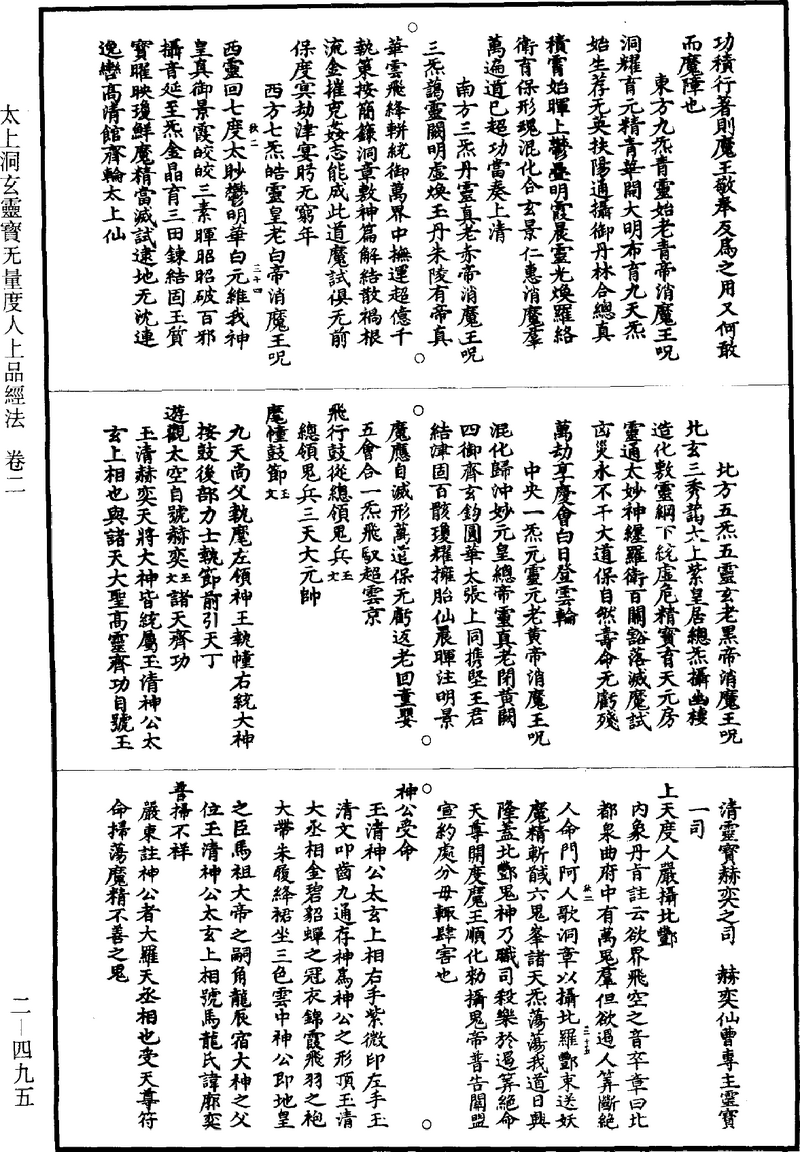 功積行著則魔王敬奉反爲之用又何敢
而魔障也
東方九炁青靈始老青帝消魔王呪
洞耀育元精青華開大明布育九天炁
始生荐无英扶陽通攝御丹林合總真
積霄始暉上鬱疊明霞晨靈光煥羅絡
衛育保形魂混化合玄景仁惠消魔羣
萬遍道已超功當奏上清
南方三炁丹靈真老赤帝消魔王呪
三炁藹靈闕明虛煥玉丹朱陵有帝真
華雲飛絳軿統御萬界中撫運超億千
執策按簡籙洞章敷神篇解結散禍根
流金摧兇姦志能成此道魔試俱无前
保度冥劫津宴眄无窮年
西方七炁皓靈皇老白帝消魔王呪
西靈回七度太眇鬱明華白元維我神
皇真御景霞皎皎三素暉昭昭破百邪
攝音延至炁金晶育三田鍊結固玉質
寶曜映瓊鮮魔精當滅試逮地无沈連
逸轡高清館齊輪太上仙
北方五炁五靈玄老黑帝消魔王呪
北玄三秀誥太上紫皇居總炁攝幽棲
造化敷靈綱下統虛危精寶育天元房
靈通太妙神纏羅衛百關豁落滅魔試
凶災永不干大道保自然壽命无虧殘
萬劫享慶會白日登雲輪
中央一炁元靈元老黃帝消魔王呪
混化歸沖妙元皇總帝靈真老閉黃闕
四御齊玄鈞圓華太張上同携堅王君
結津固百骸瓊耀擁胎仙晨暉注明景
魔應自滅形萬道保无虧返老回童嬰
五會合一炁飛馭超雲京
飛行鼓從總領鬼兵玉文
總領鬼兵三天大元帥
麾幢鼓節玉文
九天尚父執麾左領神王執幢右統大神
按鼓後部力士執節前引天丁
遊觀太空自號赫奕玉文諸天齊功
玉清赫奕天將大神皆統屬玉清神公太
玄上相也與諸天大聖高靈齊功自號玉
清靈寶赫奕之司 赫奕仙曹專主靈寶
一司
上天度人嚴攝北酆
内象丹㫖註云欲界飛空之音卒章曰北
都泉曲府中有萬鬼羣但欲遏人筭斷絶
人命門阿人歌洞章以攝北羅酆束送妖
魔精斬馘六鬼峯諸天炁蕩蕩我道日興
隆蓋北酆鬼神乃職司殺樂於遏筭絶命
天尊開度魔王順化勑攝鬼帝普告闗盟
宣約處分毋輒肆害也
神公受命
玉清神公太玄上相右手紫微印左手玉
清文叩齒九通存神爲神公之形頂玉清
大丞相金碧貂蟬之冠衣錦霞飛羽之袍
大帶朱履絳裙坐三色雲中神公即地皇
之臣馬祖大帝之嗣角龍辰宿大神之父
位玉清神公太玄上相號馬龍氏諱廓奕
普掃不祥
嚴東註神公者大羅天丞相也受天尊符
命掃蕩魔精不善之鬼
太上洞玄靈寶无量度人上品經法 卷二
二—四九五